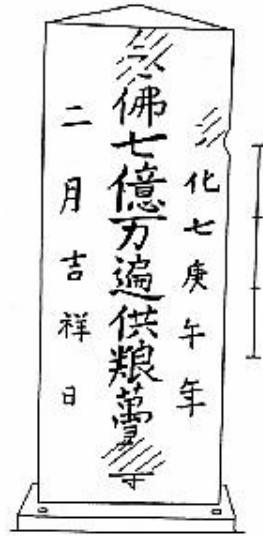 化七庚午年
佛七億万遍供粮
二月吉祥日